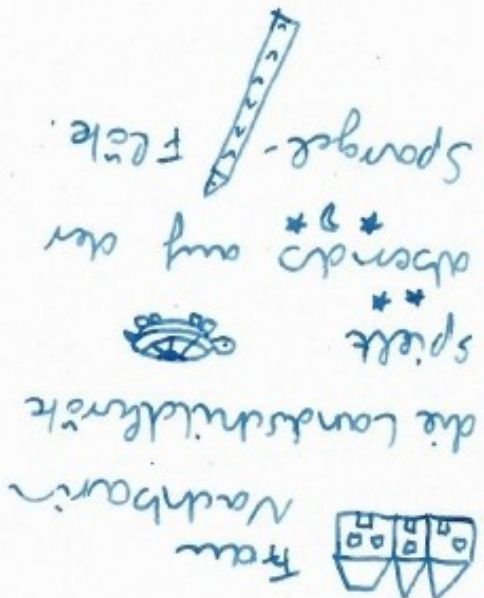 Frau
Nachbarin
die Landschildkröte
spielt
abends auf der
Spargel- Flöte.